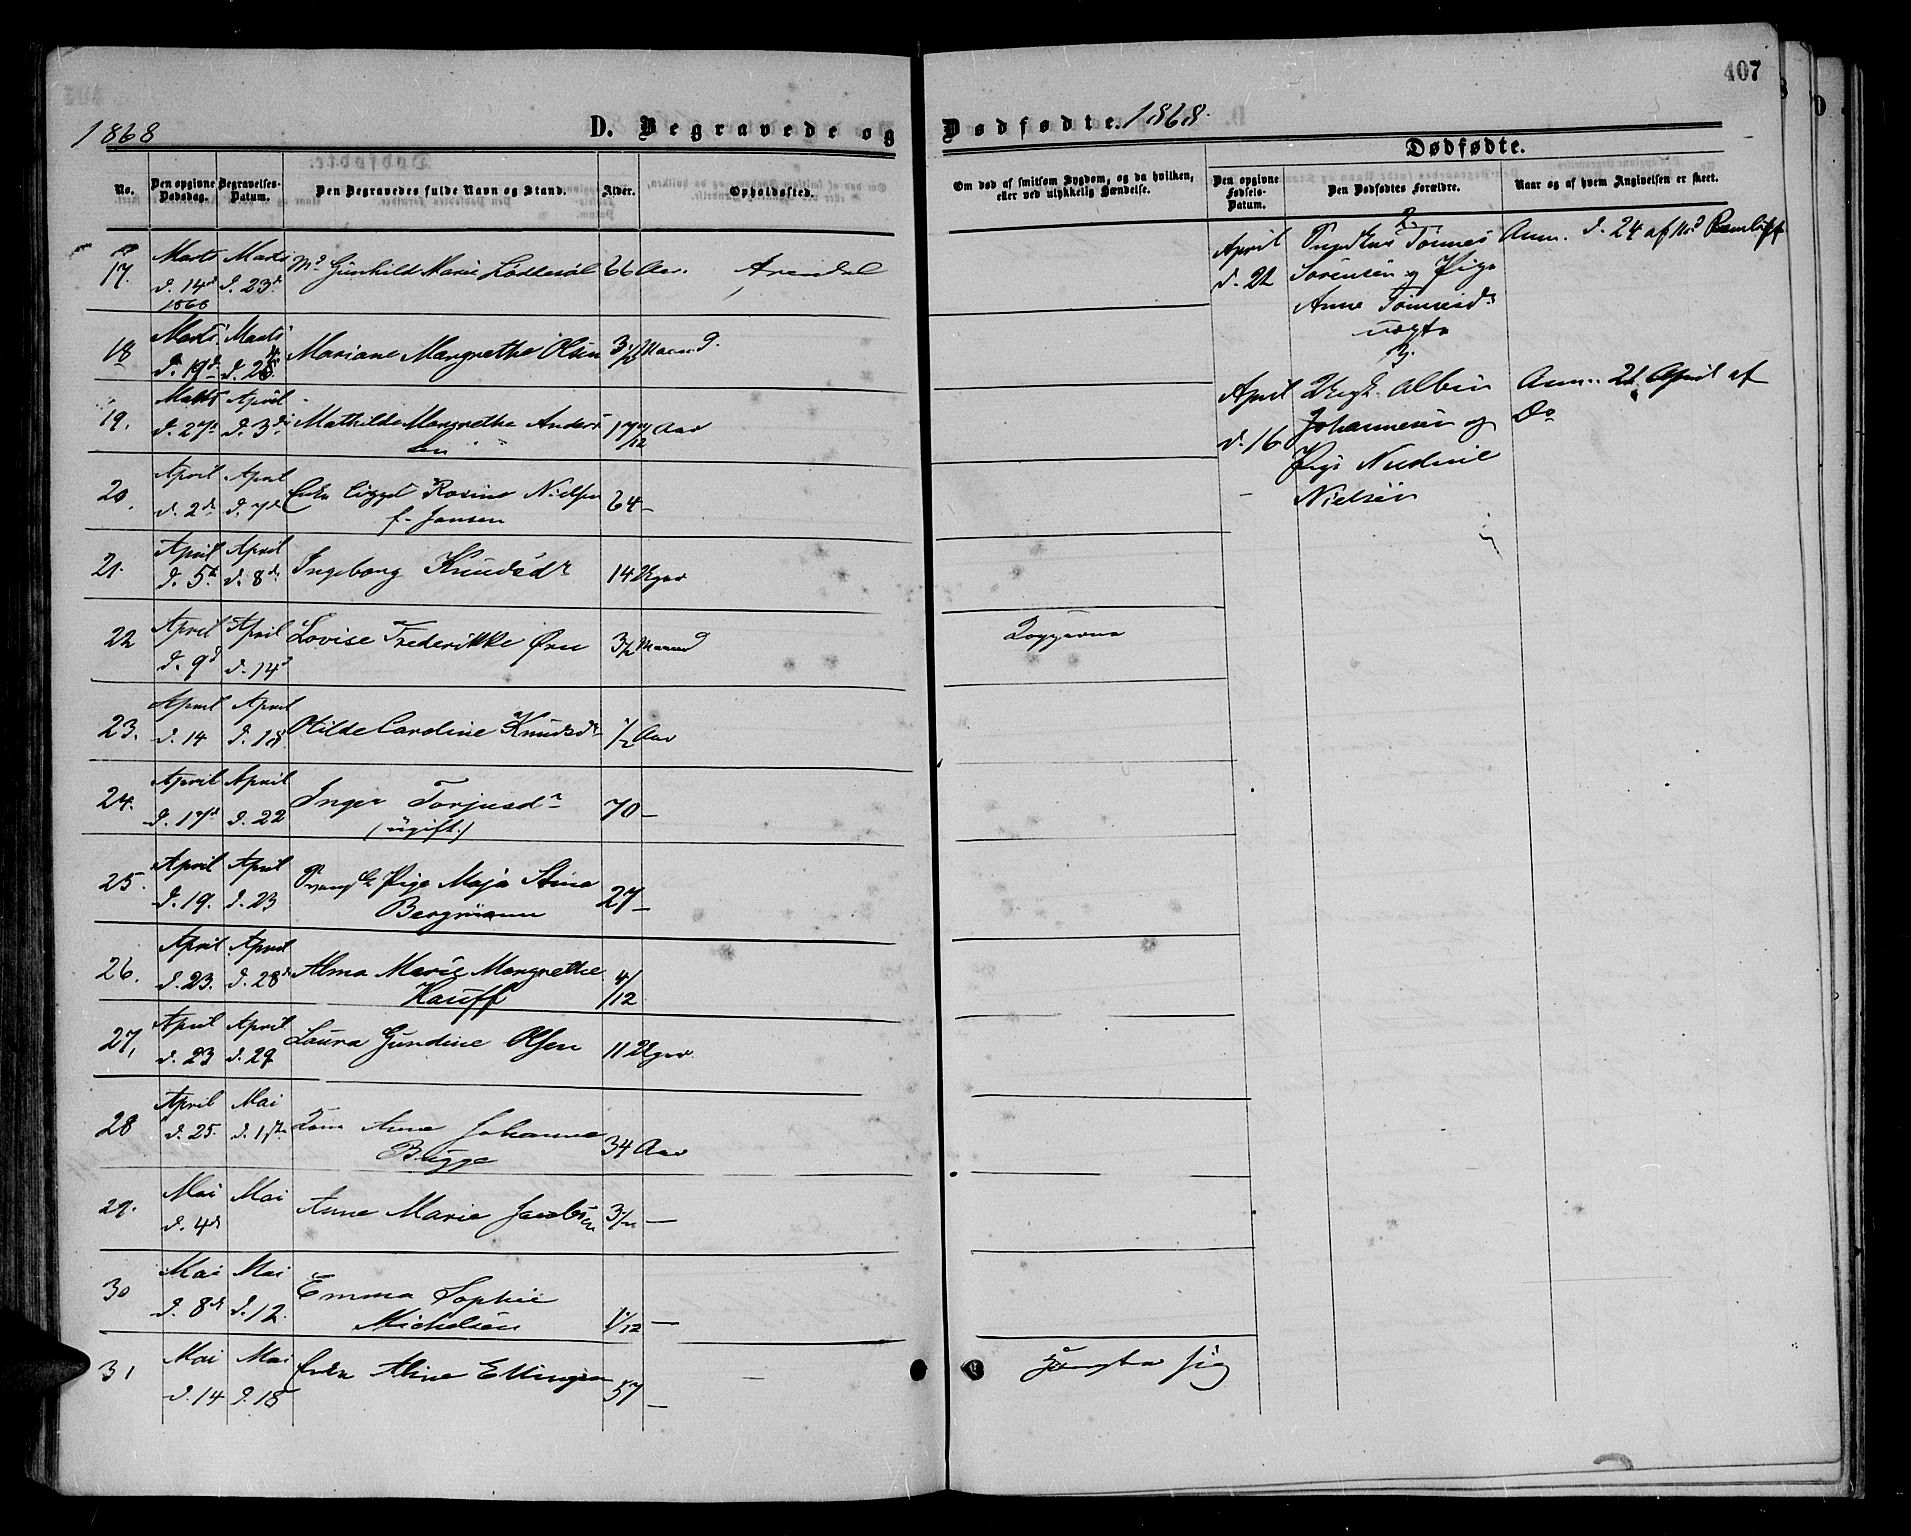 407
1868 D. Begravede og Dødfødte. 1868.
Dødfødte.
No. Den opgivne Dødsdag. Begravelses-Datum. Den Begravedes fulde Navn og Stand. Alder. Opholdssted.
Om død af smitsom Sygdom, og da hvilken, eller ved ulykkelig Hændelse. Den opgivne Fødsels-Datum. Den Dødfødtes Forældre. Naar og af hvem Angivelsen er skeet.
17. Marts Marts Md Gunhild Marie 66 Aar. Arendal
d. 14d d. 23d
1868
18 Marts Marts Mariane Margrethe Olsen 3 1/2 Maaned
d. 19d d. 25
19. Marts April Mathilde Margrethe Anders 17 Aar
d. 27 d. 3d sen
20. April April Enke Rosine Nielsen 64 —
d. 2d d. 7d f. Jansen
21. April April Ingeborg Knudsdr 14 Uger
d. 5 d. 8d
22 April April Lovise Frederikke Ørn 3 1/2 Maaned
d. 9d d. 14d
23. April April Otilde Caroline Knudsdr 1/2 Aar
d. 14 d. 18
24. April April Inger Torjusdr 70 —
d. 17d d. 22 (ugift.)
25. April April Pige Maja Stina 27 —
d. 19. d. 23 Bergmann
26. April April Alma Marie Margrethe 4/12
d. 23. d. 28d Kauff
27, April April Laura Gundine Olsen 11 Uger
d. 23 d. 29
28 April Mai Anne Johanne 34 Aar
d. 25. d. 1ste Bugge
29. Mai Mai Anne Marie Jacobsen 3 —
d. 4d
30 Mai Mai Emma Sophie
d. 8d d. 12. Michelsen 1/12 —
31 Mai Mai Enke Aline Ellingsen 57 —
d. 14 d. 18
2.
April Tønnes Anm. d. 24 af
d. 22 Sørensen og Pige
Anne Tønnesdr
uægte
3.
April Ungk. Albin Anm. 21 April af
d. 16 Johannesen og Do
Pige
Nielsen